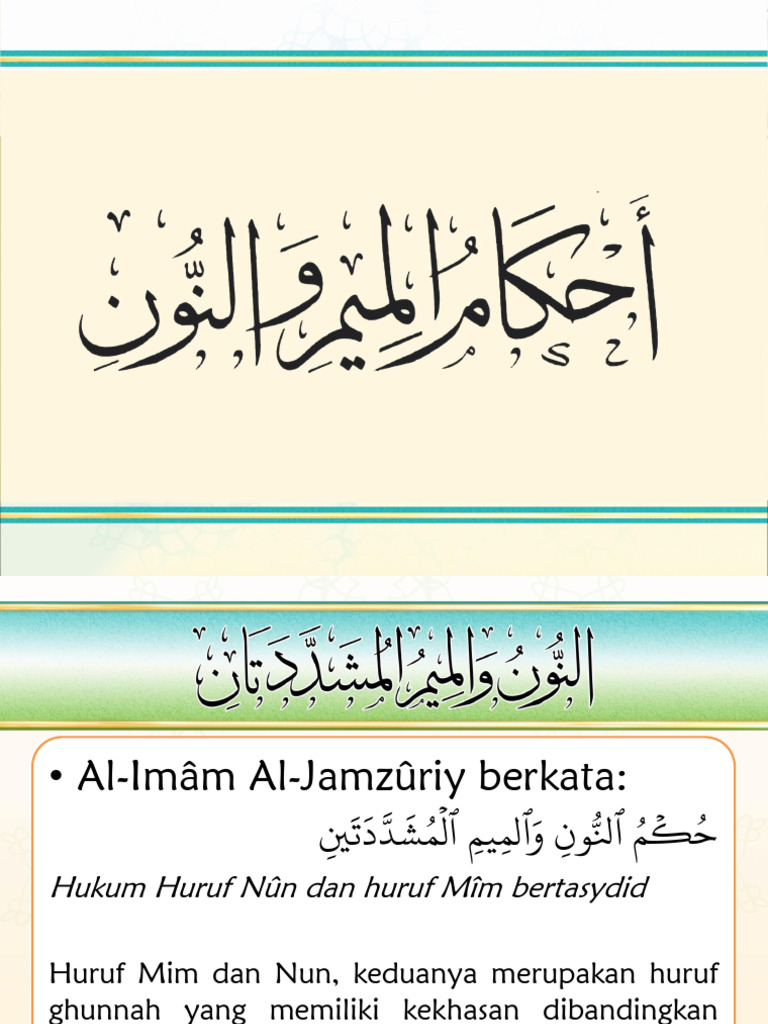 أَحْكَامُ الْمِيمِ وَالنُّونِ
النُّونُ وَالْمِيمُ الْمُشَدَّدَتَانِ
• Al-Imâm Al-Jamzûriy berkata:
حُكْمُ ٱلنُّونِ وَٱلْمِيمِ ٱلْمُشَدَّدَتَيْنِ
Hukum Huruf Nûn dan huruf Mîm bertasydid
Huruf Mim dan Nun, keduanya merupakan huruf
ghunnah yang memiliki kekhasan dibandingkan